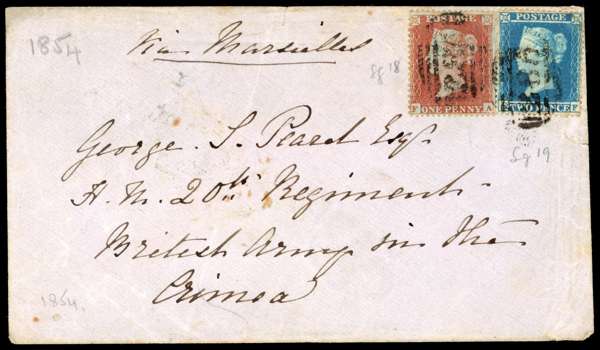 1854
via Marseilles
POSTAGE
ONE PENNY
F A
Sg 18
POSTAGE
TWO PENCE
F
Sg 19
George S. Peard Esqr
H. M. 20th Regiment
British Army in the
Crimea
1854.